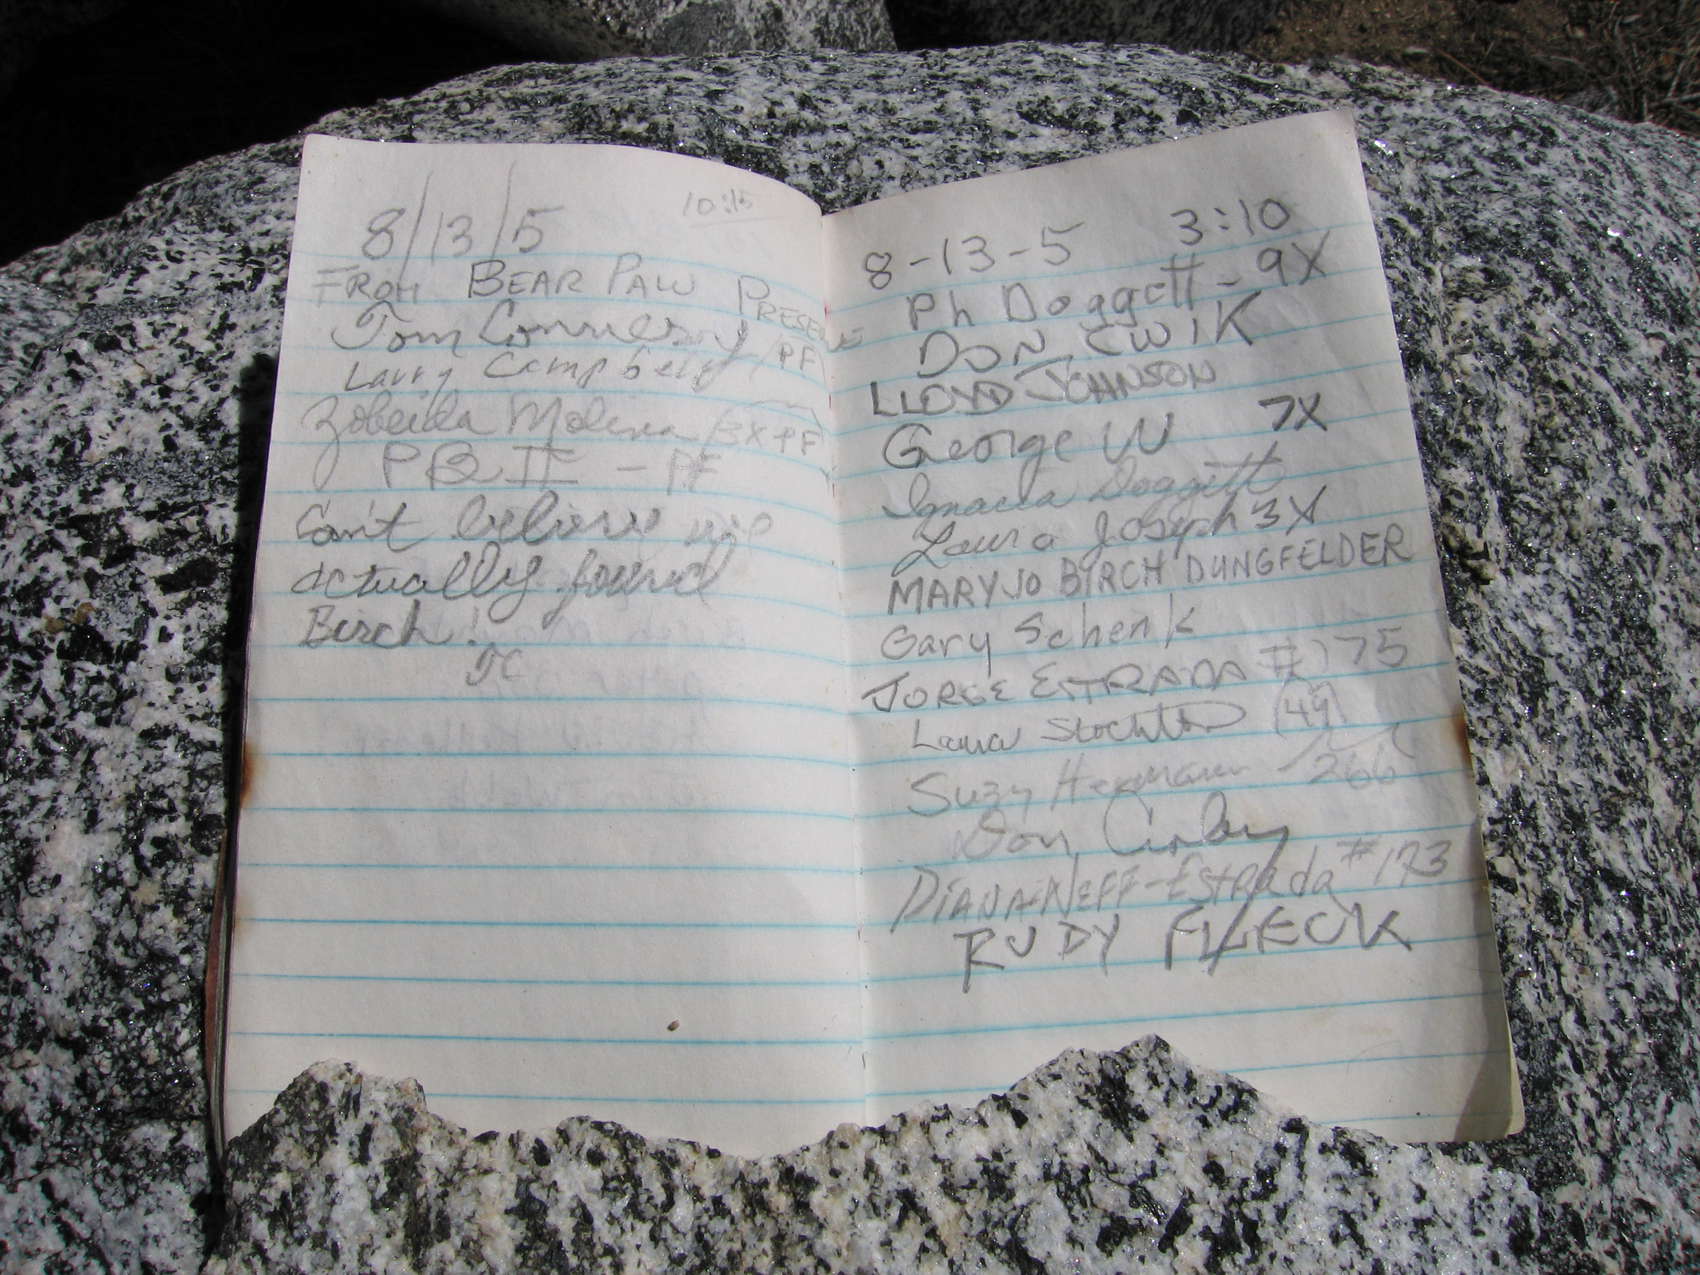 8/13/5 10:15
FROM BEAR PAW PRESERVE
Tom Connery /PF
Larry Campbell
Zobeida Molina /3X+PF
PB II - PF
Can't believe we
actually found
Birch!
TC
8-13-5 3:10
Ph Doggett - 9X
DON CWIK
LLOYD JOHNSON
George W 7X
Ignacia Doggett
Laura Joseph 3X
MARY JO BIRCH DUNGFELDER
Gary Schenk
JORGE ESTRADA # 175
Laura Stockton (49)
Suzy Hermann - 266
Don
DIANA NEFF-EStRAda #173
RUDY FLECK